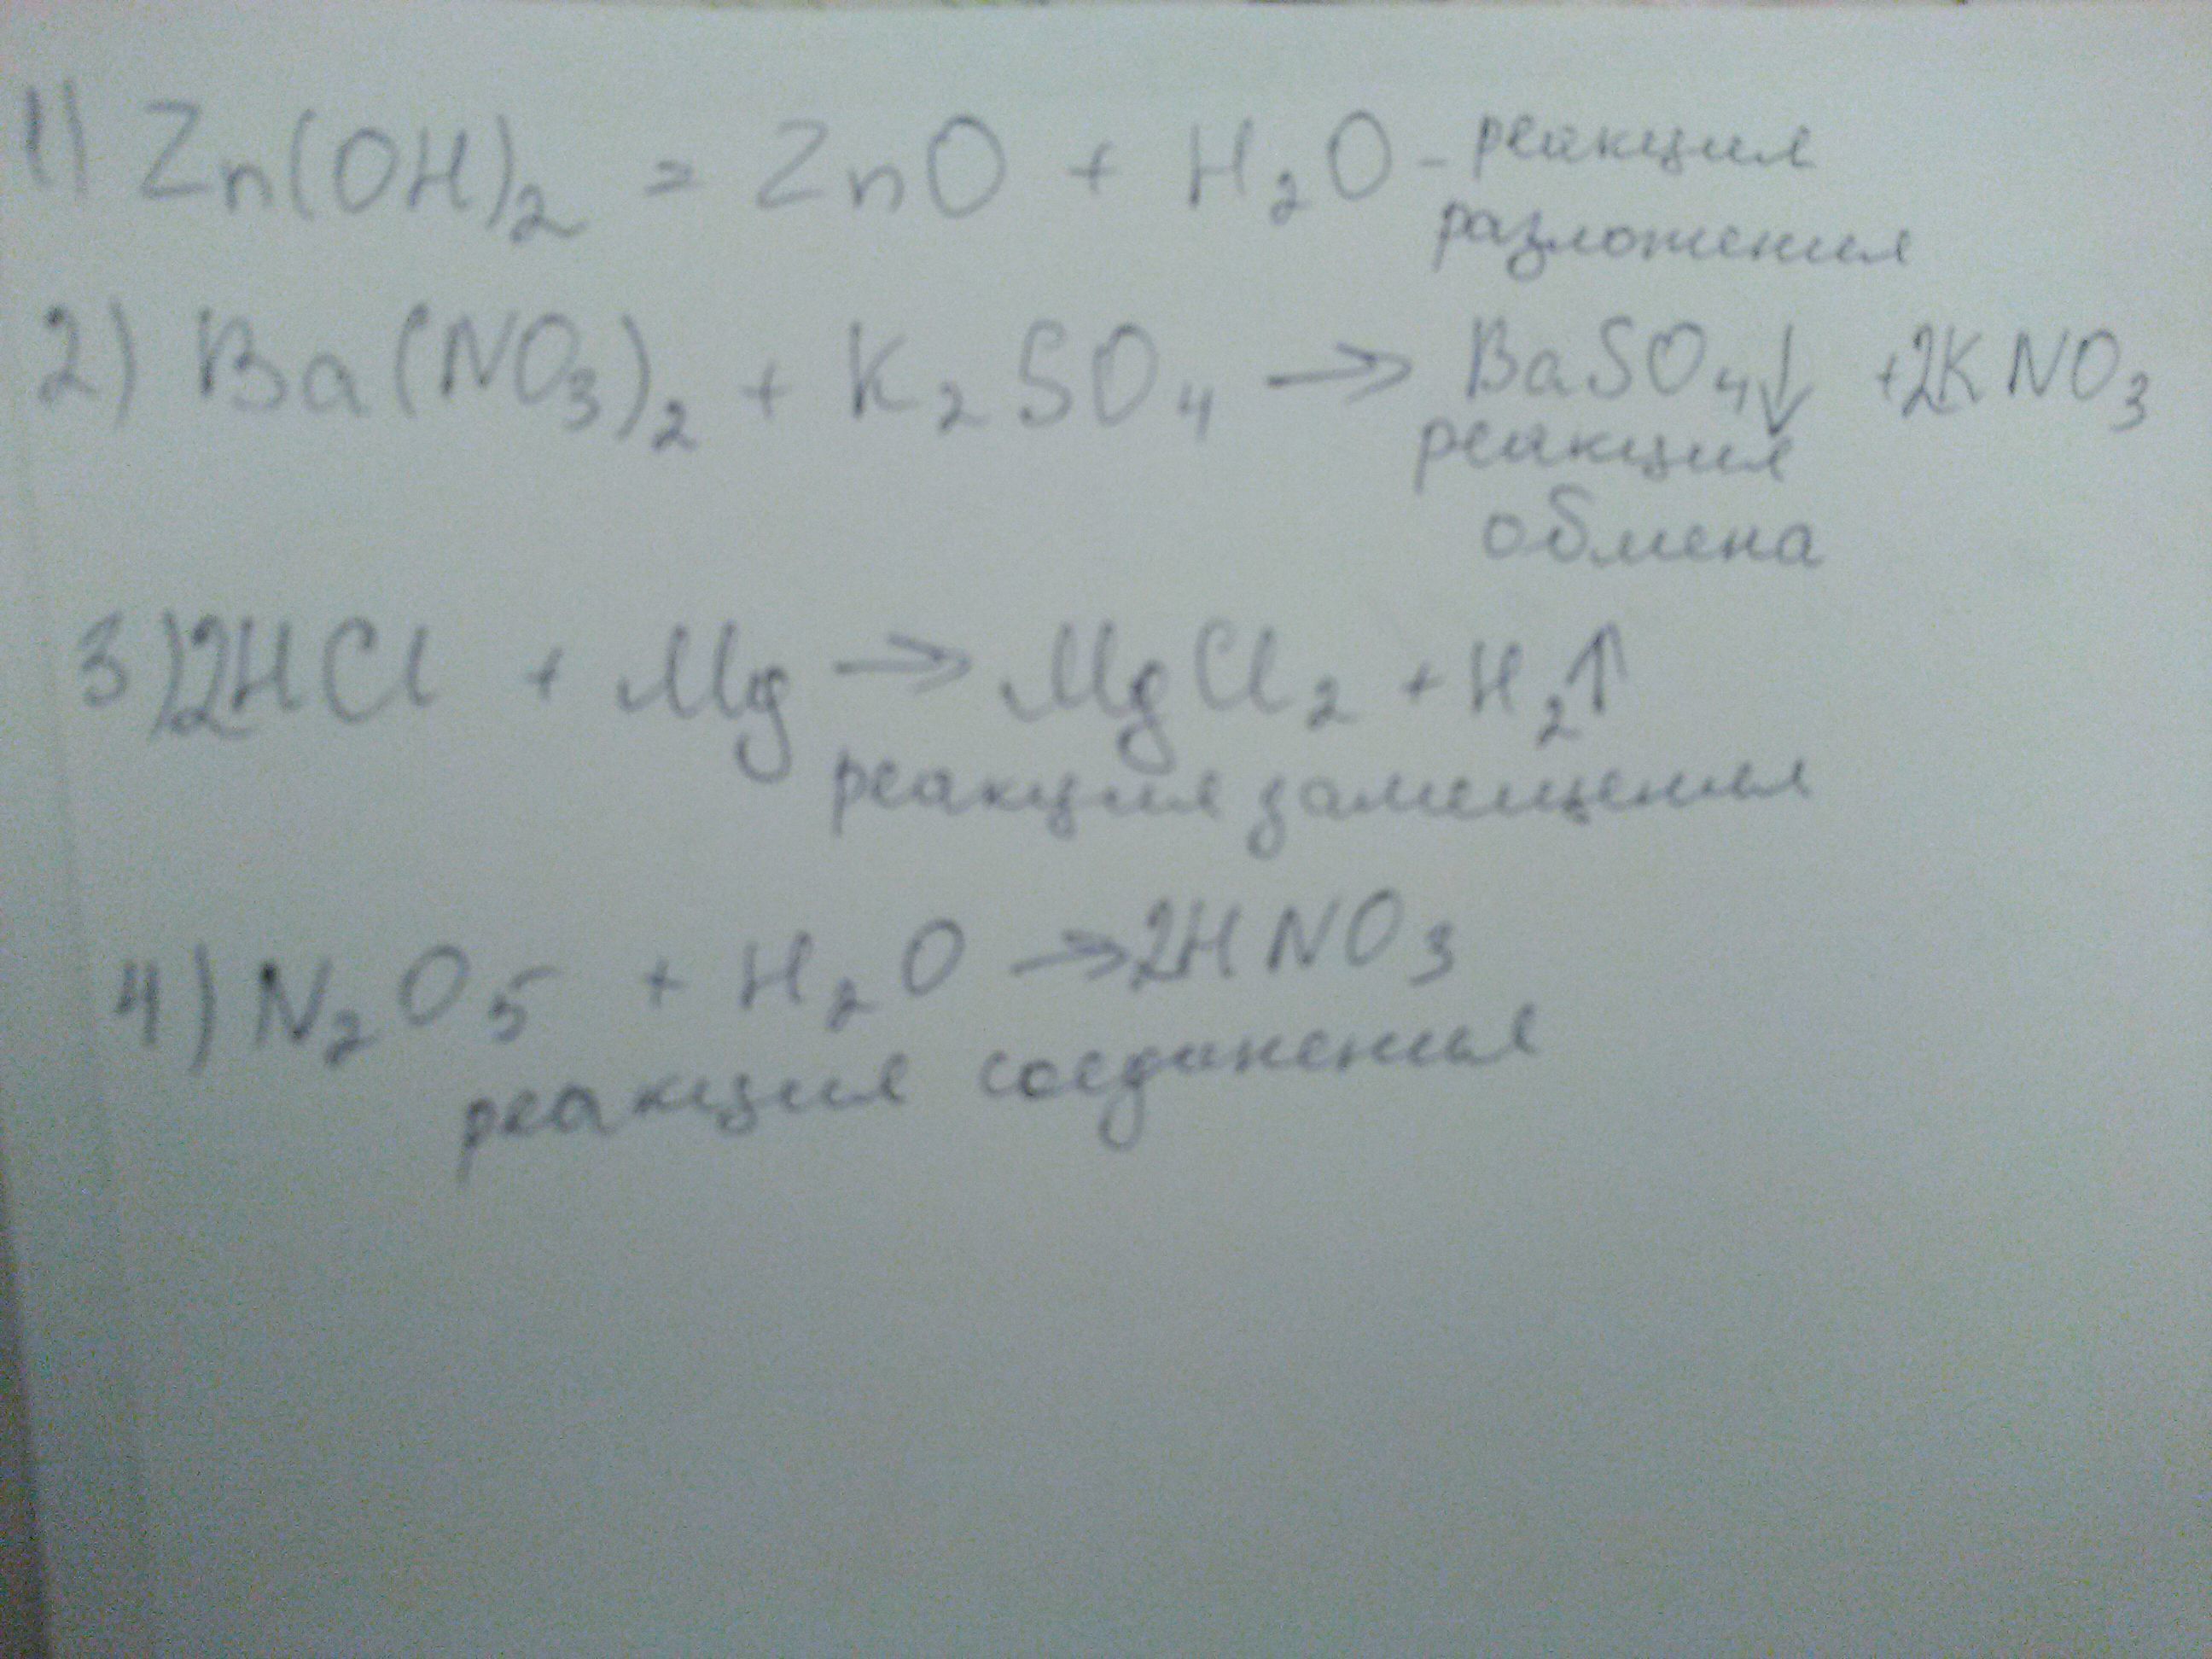 1) Zn(OH)₂ = ZnO + H₂O - реакция
разложения
2) Ba(NO₃)₂ + K₂SO₄ → BaSO₄↓ +2KNO₃
реакция
обмена
3)2HCl + Mg → MgCl₂ + H₂↑
реакция замещения
4) N₂O₅ + H₂O →2HNO₃
реакция соединения